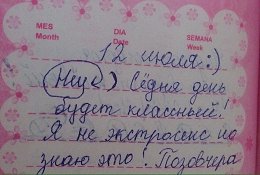 MES DIA SEMANA
Month Date Week
12 июля :)
Неус) Сёдня день
будет классный!
Я не экстросенс но
знаю это! Позовчера